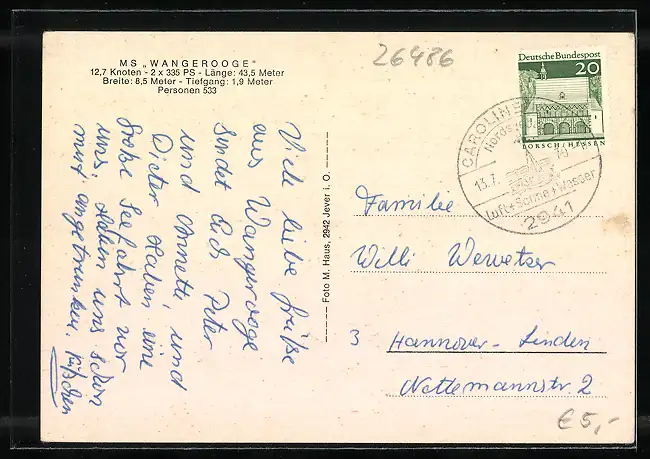 MS „WANGEROOGE"
12,7 Knoten - 2 x 335 PS - Länge: 43,5 Meter
Breite: 8,5 Meter - Tiefgang: 1,9 Meter
Personen 533
26486
Deutsche Bundespost
20
LORSCH/HESSEN
CAROLINE
Nords
13.7. 70
Luft + Sonne + Wasser
2941
Viele liebe Grüße
aus Wangerooge
sendet Euch Peter
und Annette, und
Dieter. Haben eine
große Seefahrt vor
uns. Haben uns schon
mut angetrunken.
Foto M. Haus, 2942 Jever i. O.
Familie
Willi Wewetzer
3 Hannover-Linden
Nettemannstr. 2
€ 5,-